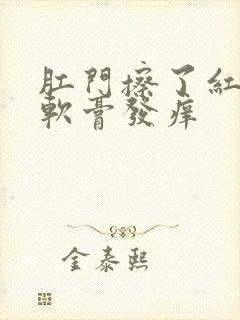 肛門擦了紅
軟膏發癢
金泰熙